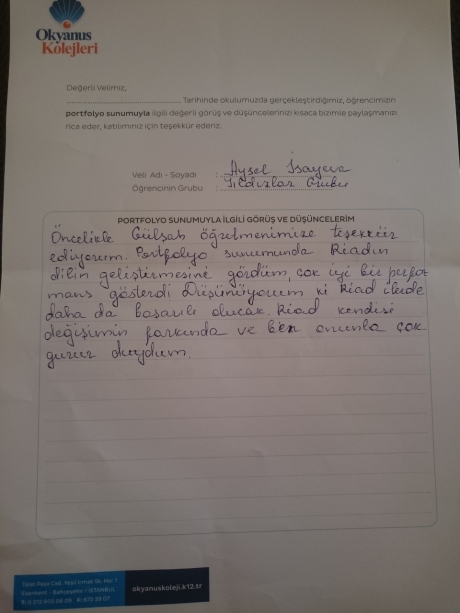 Okyanus
Kolejleri
Değerli Velimiz,
.......................................... Tarihinde okulumuzda gerçekleştirdiğimiz, öğrencimizin
portfolyo sunumuyla ilgili değerli görüş ve düşüncelerinizi kısaca bizimle paylaşmanızı
rica eder, katılımınız için teşekkür ederiz.
Veli Adı - Soyadı : Aysel İsayeva
Öğrencinin Grubu : Yıldızlar Grubu
PORTFOLYO SUNUMUYLA İLGİLİ GÖRÜŞ VE DÜŞÜNCELERİM
Öncelikle Gülşah öğretmenimize teşekkür
ediyorum. Portfolyo sunumunda Riadın
dilin geliştirmesini gördüm, çok iyi bir perfor
mans gösterdi. Düşünüyorum ki Riad ileride
daha da başarılı olucak. Riad kendisi
değişimin farkında ve ben onunla çok
gurur duydum.
okyanuskoleji.k12.tr